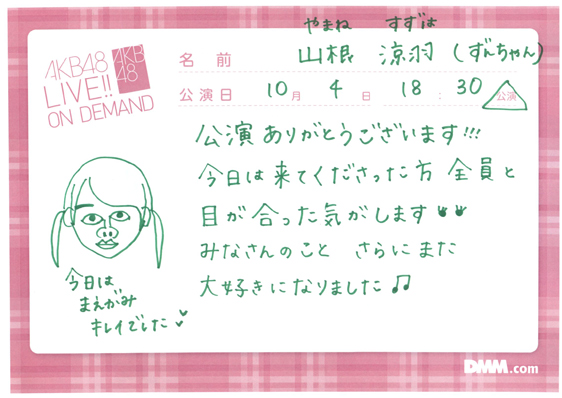 AKB48
LIVE!!
ON DEMAND
AKB
48
やまね すずは
名前 山根 涼羽 (ずんちゃん)
公演日 10月 4日 18:30 公演
公演ありがとうございます!!!
今日は来てくださった方 全員と
目が合った気がします
みなさんのこと さらにまた
大好きになりました♫
今日は
まえがみ
キレイでした
DMM.com